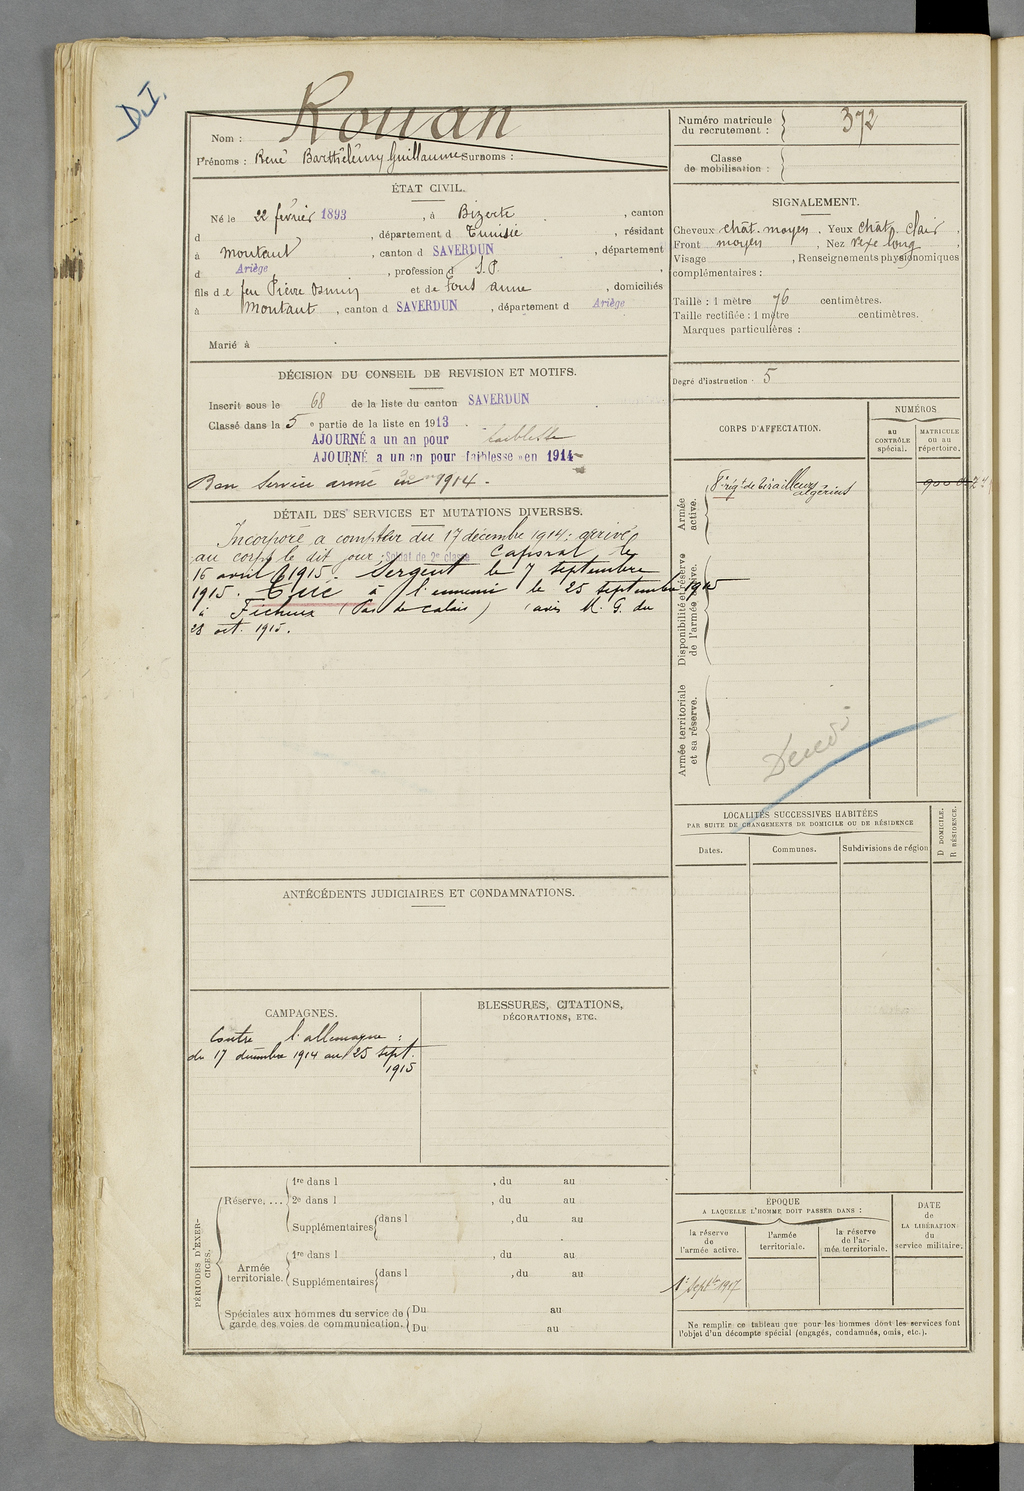 D.I.
Nom : Rouan
Prénoms : René Barthélémy Guillaume Surnoms :
Numéro matricule du recrutement : 372
Classe de mobilisation :
ÉTAT CIVIL.
Né le 22 février 1893, à Bizerte, canton
d , département d Tunisie, résidant
à Montaut, canton d SAVERDUN, département
d Ariège, profession d S.P.
fils de feu Pierre Osmin et de Fons anne, domiciliés
à Montaut, canton d SAVERDUN, département d Ariège
Marié à
SIGNALEMENT.
Cheveux chât. moyen. Yeux chât. clair,
Front moyen, Nez vexe long
Visage , Renseignements physionomiques
complémentaires :
Taille : 1 mètre 76 centimètres.
Taille rectifiée : 1 mètre centimètres.
Marques particulières :
Degré d'instruction. 5
DÉCISION DU CONSEIL DE REVISION ET MOTIFS.
Inscrit sous le 68 de la liste du canton SAVERDUN
Classé dans la 5e partie de la liste en 1913.
AJOURNÉ a un an pour faiblesse
AJOURNÉ a un an pour faiblesse en 1914
Bon Service armé en 1914.
DÉTAIL DES SERVICES ET MUTATIONS DIVERSES.
Incorporé à compter du 17 décembre 1914; arrivé
au corps le dit jour. Soldat de 2e classe Caporal le
16 avril 1915. Sergent le 7 septembre
1915. Tué à l'ennemi le 25 septembre 1915
à Ficheux (Pas de calais) (avis M. G. du
28 oct. 1915.
CORPS D'AFFECTATION.
NUMÉROS
au CONTRÔLE spécial.
MATRICULE ou au répertoire.
Armée active.
8e régt de tirailleurs algériens
Disponibilité et réserve de l'armée active.
Armée territoriale et sa réserve.
LOCALITÉS SUCCESSIVES HABITÉES
PAR SUITE DE CHANGEMENTS DE DOMICILE OU DE RÉSIDENCE
D DOMICILE.
R RÉSIDENCE.
Dates. Communes. Subdivisions de région
ANTÉCÉDENTS JUDICIAIRES ET CONDAMNATIONS.
CAMPAGNES.
Contre l'allemagne :
du 17 décembre 1914 au 25 sept.
1915
BLESSURES, CITATIONS,
DÉCORATIONS, ETC.
PÉRIODES D'EXERCICES.
Réserve. ...
1re dans l , du au
2e dans l , du au
Supplémentaires dans l , du au
Armée territoriale.
1re dans l , du au
Supplémentaires dans l , du au
Spéciales aux hommes du service de garde des voies de communication.
Du au
Du au
ÉPOQUE
A LAQUELLE L'HOMME DOIT PASSER DANS :
la réserve de l'armée active.
l'armée territoriale.
la réserve de l'armée territoriale.
DATE de LA LIBÉRATION du service militaire.
1er Septbre 1917
Ne remplir ce tableau que pour les hommes dont les services font
l'objet d'un décompte spécial (engagés, condamnés, omis, etc.).